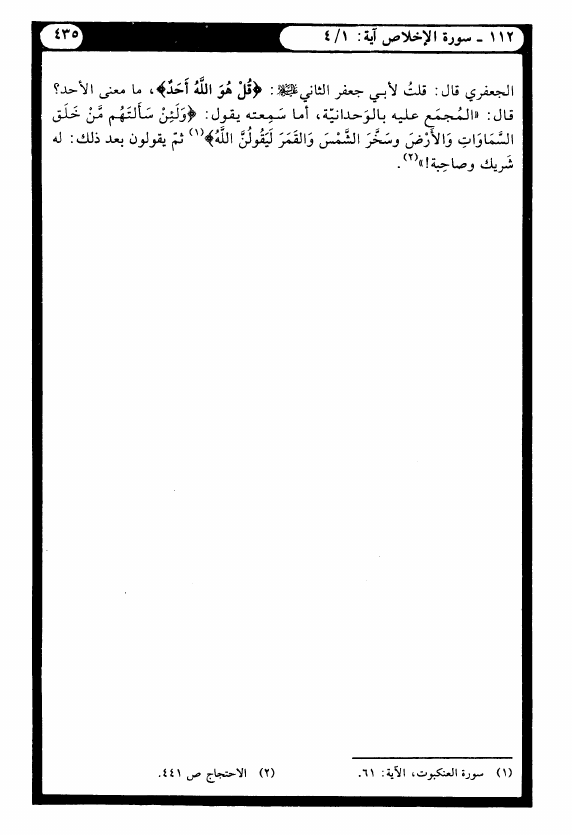 ١١٢ ـ سورة الإخلاص آية: ٤/١
٤٣٥
الجعفري قال: قلتُ لأبي جعفر الثاني ﷺ: ﴿قُلْ هُوَ اللَّهُ أَحَدٌ﴾، ما معنى الأحد؟
قال: «المُجمَع عليه بالوَحدانيّة، أما سَمِعته يقول: ﴿وَلَئِنْ سَأَلتَهُم مَّنْ خَلَقَ
السَّمَاوَاتِ وَالأَرْضَ وسَخَّرَ الشَّمْسَ وَالقَمَرَ لَيَقُولُنَّ اللَّهُ﴾(١) ثمّ يقولون بعد ذلك: له
شَريك وصاحِبة!»(٢).
(١) سورة العنكبوت، الآية: ٦١.
(٢) الاحتجاج ص ٤٤١.